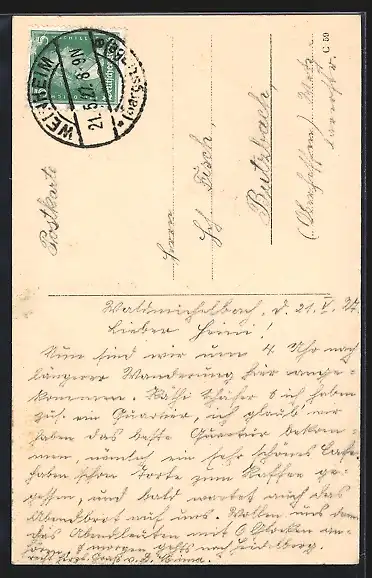 5
WEINHEIM
21.5.27. 8-9N
(BERGSTR)
C 50
Postkarte
Herrn
Hch. Fisch,
Butzbach,
(Oberhessen)
Waldmichelbach, d. 21. V. 27.
Lieber Heini!
Nun sind wir um 4 Uhr nach
längerer Wanderung hier ange-
kommen. Käthe Schäfer & ich haben
zus. ein Quartier, ich glaub' wir
haben das beste Quartier bekom-
men, nämlich ein sehr schönes Café
haben schon Torte zum Kaffee ge-
gessen, und bald wartet auch das
Abendbrot auf uns. Wollen uns dann
das Abendläuten mit 6 Glocken an-
hören & morgen geht's nach Heidelberg.